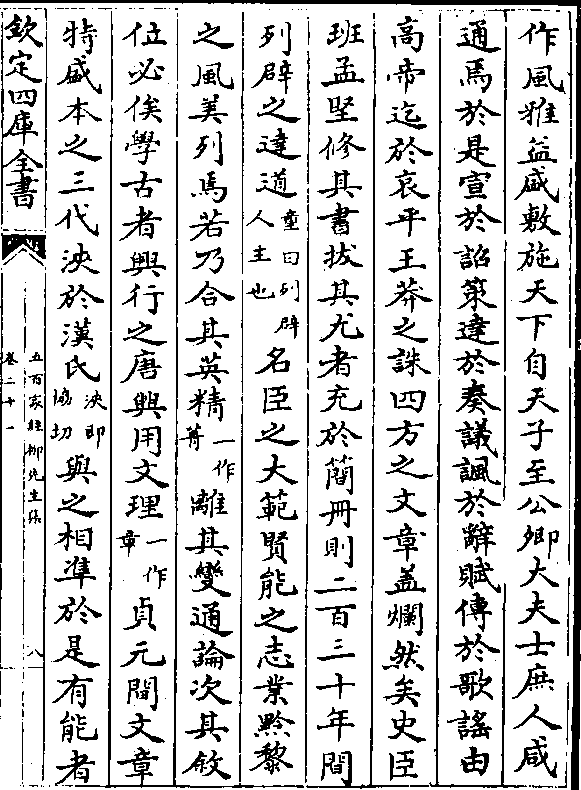 作風雅益盛敷施天下自天子至公卿大夫士庶人咸
通焉於是宣於詔策達於奏議諷於辭賦傳於歌謠由
高帝迄於哀平王莽之誅四方之文章蓋爛然矣史臣
班孟堅修其書拔其尤者充於簡冊則二百三十年間
列辟之達道童曰列辟人主也名臣之大範賢能之志業黔黎
之風美列焉若乃合其英精一作菁離其變通論次其敘
位必俟學古者興行之唐興用文理一作章貞元間文章
特盛本之三代浹於漢氏浹即協切與之相準於是有能者
欽定四庫全書
五百家註柳先生集
卷二十一
八